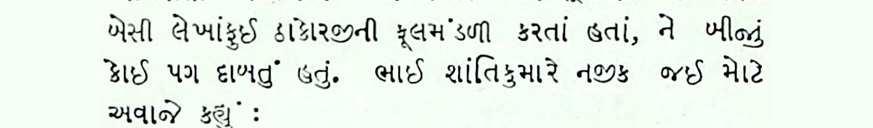 બેસી લેખાંફુઈ ઠાકોરજીની ફૂલમંડળી કરતાં હતાં, ને બીજું
કોઈ પગ દાબતું હતું. ભાઈ શાંતિકુમારે નજીક જઈ મોટે
અવાજે કહ્યું :